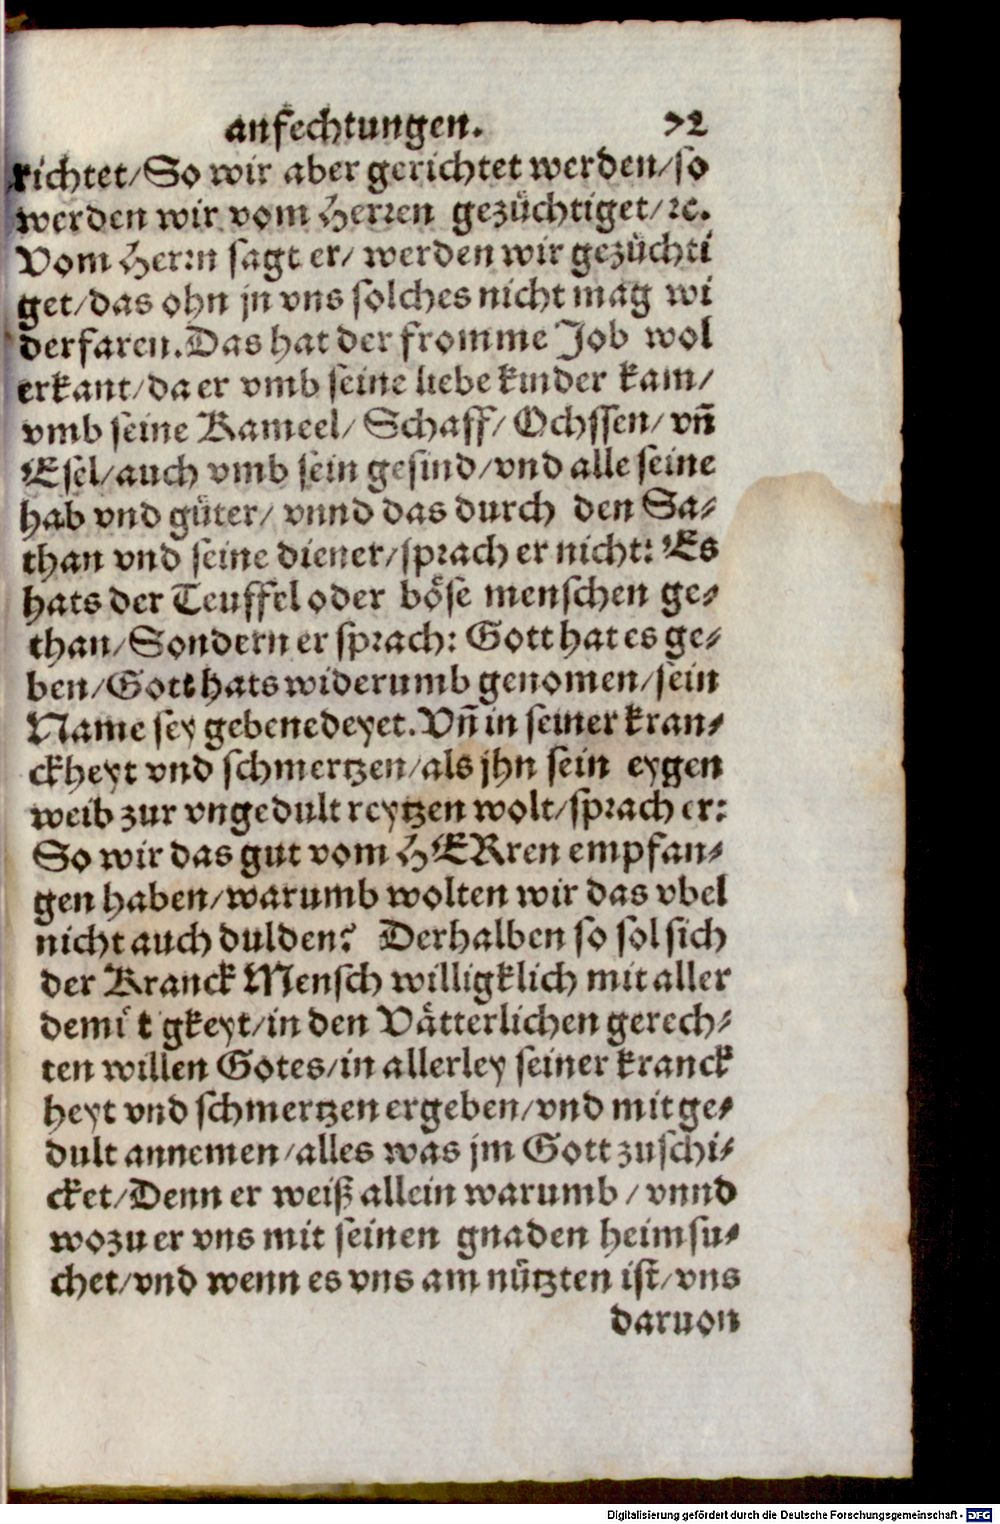 anfechtungen. 72
richtet/So wir aber gerichtet werden/so
werden wir vom Herren gezüchtiget/ꝛc.
Vom Herrn sagt er/ werden wir gezüchti
get/das ohn jn vns solches nicht mag wi
derfaren. Das hat der fromme Job wol
erkant/da er vmb seine liebe kinder kam/
vmb seine Kameel/ Schaff/ Ochssen/ vñ
Esel/auch vmb sein gesind/vnd alle seine
hab vnd güter/ vnnd das durch den Sa-
than vnd seine diener/sprach er nicht: Es
hats der Teuffel oder böse menschen ge-
than/Sondern er sprach: Gott hat es ge-
ben/Gott hats widerumb genomen/sein
Name sey gebenedeyet. Vñ in seiner kran-
ckheyt vnd schmertzen/als jhn sein eygen
weib zur vngedult reytzen wolt/sprach er:
So wir das gut vom HERren empfan-
gen haben/warumb wolten wir das vbel
nicht auch dulden? Derhalben so sol sich
der Kranck Mensch willigklich mit aller
demütigkeyt/in den Vätterlichen gerech-
ten willen Gotes/in allerley seiner kranck
heyt vnd schmertzen ergeben/vnd mit ge-
dult annemen/alles was jm Gott zuschi-
cket/Denn er weiß allein warumb/ vnnd
wozu er vns mit seinen gnaden heimsu-
chet/vnd wenn es vns am nützten ist/vns
daruon
Digitalisierung gefördert durch die Deutsche Forschungsgemeinschaft - DFG